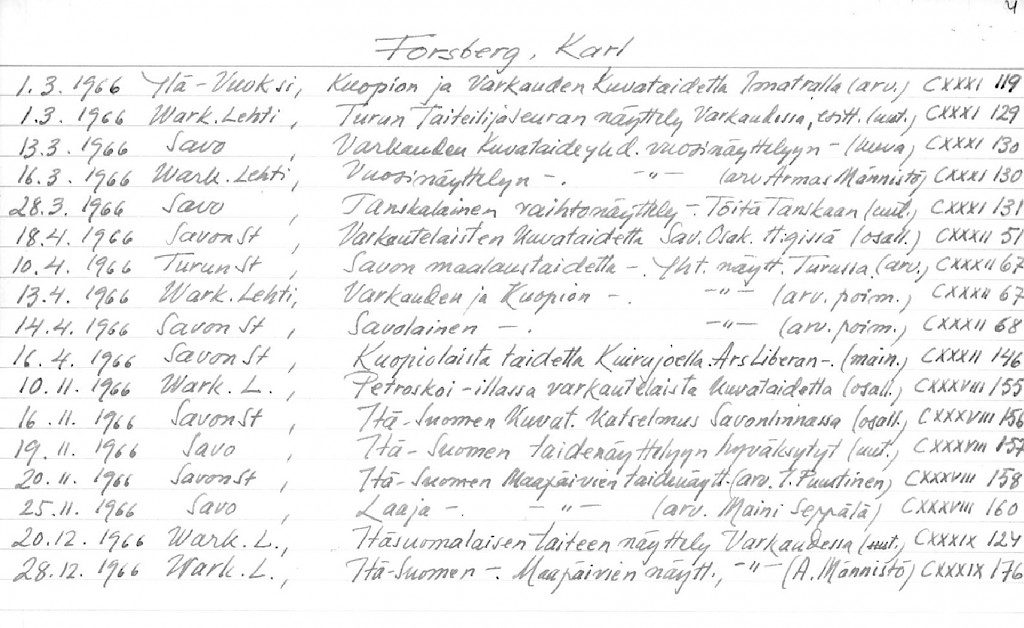 4
Forsberg, Karl
1.3.1966 Itä-Vuoksi, Kuopion ja Varkauden Kuvataidetta Imatralla (arv.) CXXXI 119
1.3.1966 Wark.Lehti, Turun Taiteilijaseuran näyttely Varkaudessa, esitt. (uut.) CXXXI 129
13.3.1966 Savo, Varkauden Kuvataideyhd. vuosinäyttelyyn - (kuva) CXXXI 130
16.3.1966 Wark.Lehti, Vuosinäyttelyn -. -"- (arv. Armas Männistö) CXXXI 130
28.3.1966 Savo, Tanskalainen vaihtonäyttely -. Töitä Tanskaan (uut.) CXXXI 131
18.4.1966 SavonSt, Varkautelaisten kuvataidetta Sav.Osak. H:gissä (osall.) CXXXII 51
10.4.1966 TurunSt, Savon maalaustaidetta -. Yht. näytt. Turussa (arv.) CXXXII 67
13.4.1966 Wark.Lehti, Varkauden ja Kuopion -. -"- (arv. poim.) CXXXII 67
14.4.1966 SavonSt, Savolainen -. -"- (arv. poim.) CXXXII 68
16.4.1966 SavonSt, Kuopiolaista taidetta Kiirujoella. Ars Liberan -. (main.) CXXXII 146
10.11.1966 Wark.L., Petroskoi-illassa varkautelaista kuvataidetta (osall.) CXXXVIII 155
16.11.1966 SavonSt, Itä-Suomen Kuvat. Katselmus Savonlinnassa (osall.) CXXXVIII 156
19.11.1966 Savo, Itä-Suomen taidenäyttelyyn hyväksytyt (uut.) CXXXVIII 157
20.11.1966 SavonSt, Itä-Suomen Maapäivien taidenäytt. (arv. T. Puustinen) CXXXVIII 158
25.11.1966 Savo, Laaja -. -"- (arv. Maini Seppälä) CXXXVIII 160
20.12.1966 Wark.L., Itäsuomalaisen taiteen näyttely Varkaudessa (uut.) CXXXIX 124
28.12.1966 Wark.L., Itä-Suomen -. Maapäivien näytt., -"- (A. Männistö) CXXXIX 176